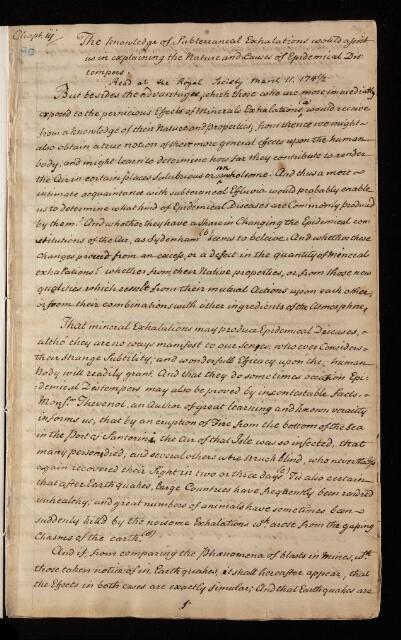 Chapt. iij.
The knowledge of Subterraneal Exhalations would assist
us in explaining the Nature and Causes of Epidemical Dis-
tempers.
Read at the Royal Society March 11. 174½
But besides the advantages, which those who are more immediately
exposed to the pernicious Effects of Minerals Exhalations, (a) would receive
from a knowledge of their Nature and properties; from thence we might
also obtain a true notion of their more general effects upon the human
body, and might learn to determine how far they contribute to render
the Air in certain places Salubrious or unwholsome. And thus a more
intimate acquaintance with subterraneal Effluvia would probably enable
us to determine what kind of Epidemical Diseases are Commonly produced
by them. And whether they have a share in Changing the Epidemical con-
stitutions of the Air, as Sydenham (b) seems to beleive. And whether these
changes proceed from an excess, or a defect in the quantity of Mineral
exhalations? whether from their Native properties, or from those new
qualities which result from their mutual Actions upon each other
or from their combinations with other ingredients of the Atmosphere,
That mineral Exhalations may produce Epidemical Diseases,
altho' they are no ways manifest to our Senses, whoever Considers
their Strange Subtility, and wonderfull Efficacy upon the human
Body will readily grant. And that they do sometimes occasion Epi-
demical Distempers may also be proved by incontestable facts.
Monsr. Thevenot, an Author of great learning and known veracity
informs us, that by an eruption of Fire from the bottom of the Sea
in the Port of Santorini, the Air of that Isle was so infected, that
many persons died, and several others were struck blind, who nevertheless
again recovered their Sight in two or three days. (c) Tis also certain
that after Earthquakes, large Countries have frequently been rendred
unhealthy, and great numbers of animals have sometimes been
suddenly kill'd by the noisome Exhalations wch. arose from the gaping
Chasms of the earth. (d)
And if, from comparing the Phænomena of blasts in Mines, wth.
those taken notice of in Earthquakes, it shall hereafter appear, that
the Effects in both cases are exactly similar; And that Earthquakes are